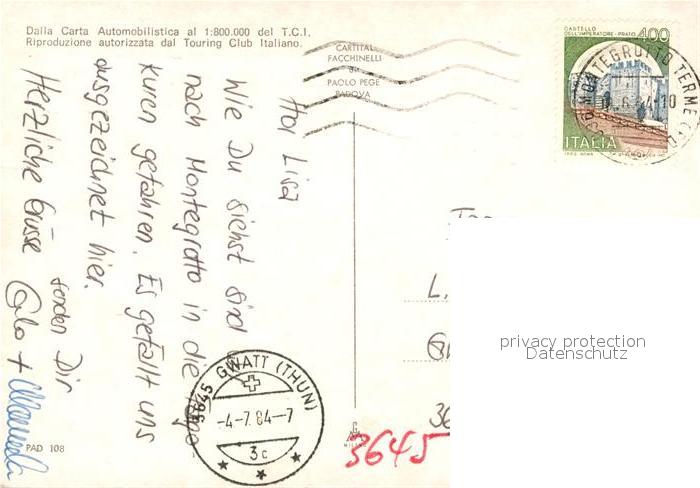 Dalla Carta Automobilistica al 1:800.000 del T.C.I.
Riproduzione autorizzata dal Touring Club Italiano.
CARTITAL
FACCHINELLI
di
PAOLO PEGE
PADOVA
CASTELLO
DELL'IMPERATORE - PRATO
400
ITALIA
MONTEGROTTO TERME
Wie Du siehst sind
nach Montegrotto in die
kuren gefahren. Es gefällt uns
ausgezeichnet hier.
Herzliche Grüsse
senden Dir
Carlo +
L.
privacy protection
Datenschutz
36
3645
3645 GWATT (THUN)
-4-7.84-7
3c
MILANO
PAD 108